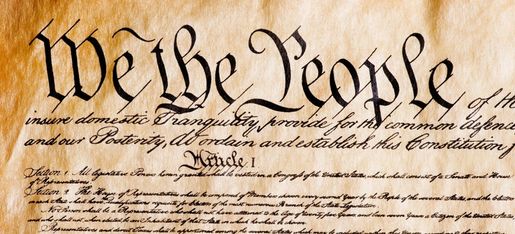 We the People of the
insure domestic Tranquility, provide for the common defence
and our Posterity, do ordain and establish this Constitution f
Article I
Section 1. All legislative Powers herein granted shall be vested in a Congress of the United States, which shall consist of a Senate and House
of Representatives.
Section 2. The House of Representatives shall be composed of Members chosen every second Year by the People of the several States, and the
State shall have the Qualifications requisite for Electors of the most numerous Branch of the State Legislature.
No Person shall be a Representative who shall not have attained to the Age of twenty five Years, and been seven Years a Citizen of the United States,
and who shall not, when elected, be an Inhabitant of that State in which he shall be chosen.
Representatives and direct Taxes shall be apportioned among the several States which may be included within this